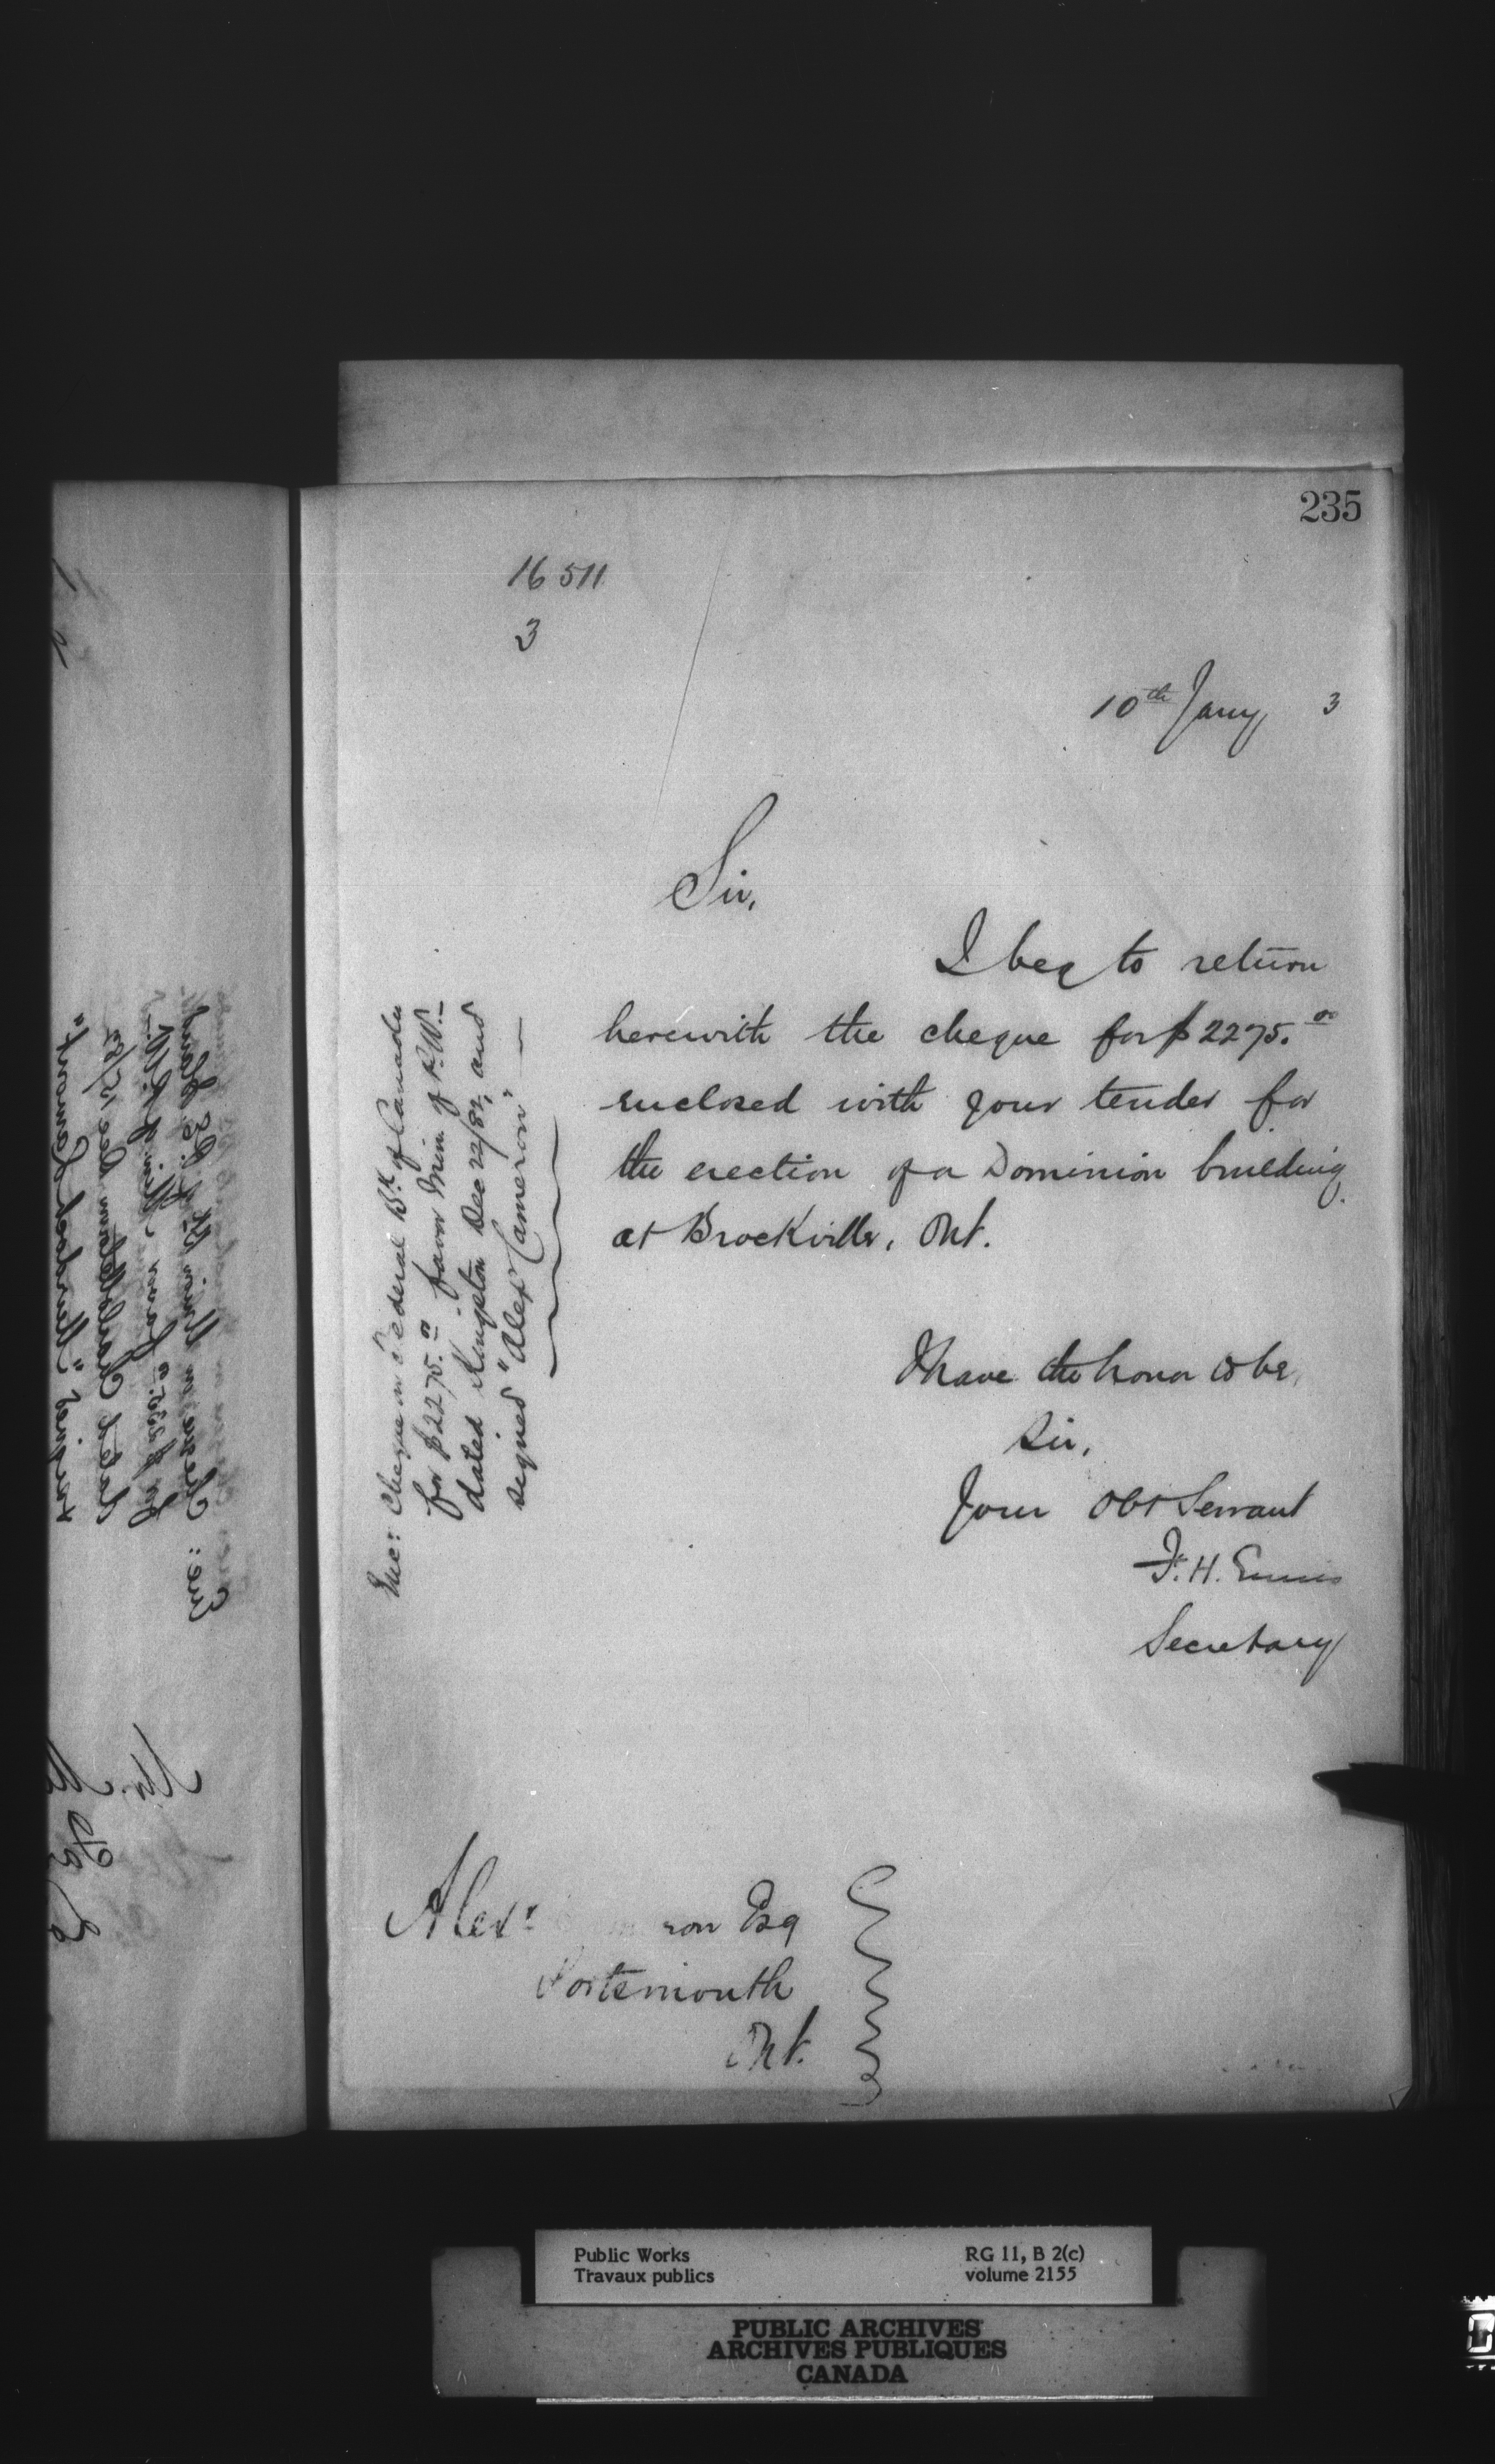 235
16511
3
10th Jany 3
Sir,
I beg to return
herewith the cheque for $2275.00
enclosed with your tender for
the erection of a Dominion building
at Brockville, Ont.
I have the honor to be,
Sir,
Your Obt Servant
F. H. Ennis
Secretary
Enc: Cheque on Federal Bk of Canada
for $2275.00 favor Min. of P.W.
dated Kingston Dec 22/82, and
signed "Alexr Cameron"
Alexr ron Esq
Portsmouth
Ont.
Public Works
Travaux publics
RG 11, B 2(c)
volume 2155
PUBLIC ARCHIVES
ARCHIVES PUBLIQUES
CANADA